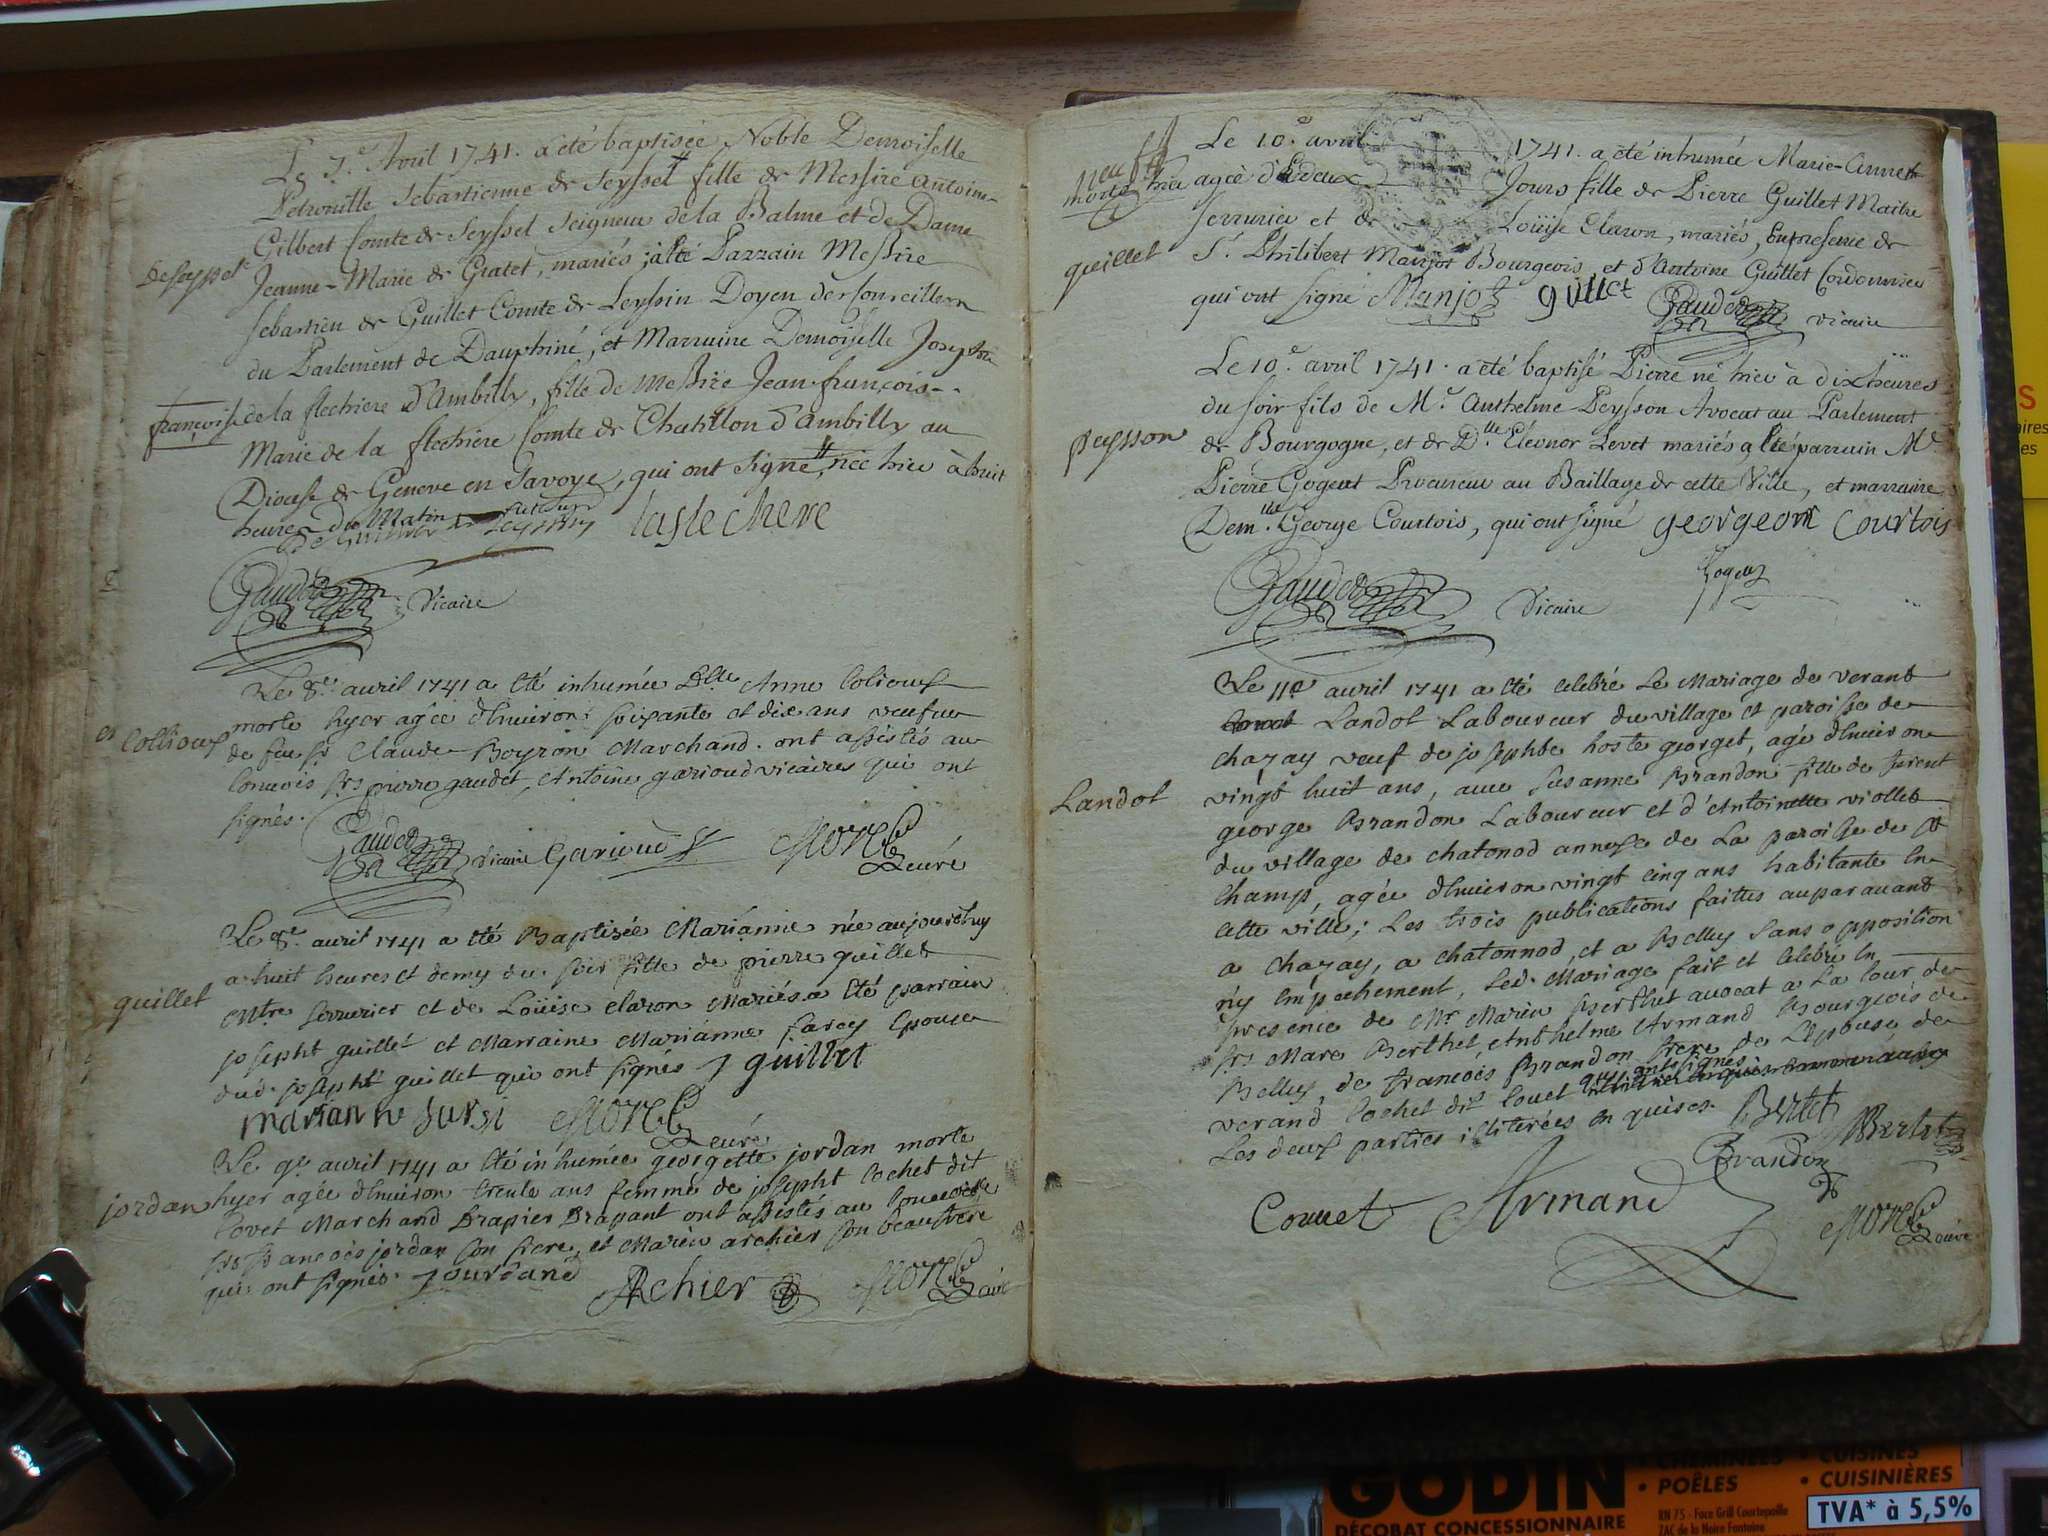 Le 7e Avril 1741. a été baptisée Noble Demoiselle
Petronille Sebastienne de Seyssel fille de Messire Antoine-
Gilbert Comte de Seyssel Seigneur de la Balme et de Dame
DeSeyssel Jeanne-Marie de Gratet, mariés, a été Parrain Messire
Sebastien de Guillet Comte de Leyssin Doyen des Conseillers
du Parlement de Dauphiné, et Marraine Demoiselle Josephte
françoise de la flechiere d'Ambilly, fille de Messire Jean françois-
Marie de la flechiere Comte de Chatillon d'Ambilly au
Diocese de Geneve en Savoye, qui ont signé, née hier à huit
heures du Matin
laflechere
Gaudet Vicaire
Le 8e. auril 1741 a été inhumée Dlle Anne Collioux
Collioux morte hyer agée d'enuiron soixante et dix ans veufue
de feu sr Claude Boyron Marchand. ont assistés au
Conuois srs pierre gaudet, Antoine garioud vicaires qui ont
signés.
Gaudet Vicaire Garioud curé
Le 8e. auril 1741 a été Baptisée Marianne née aujourdhuy
a huit heures et demy du soir fille de pierre guillet
guillet Mtre serrurier et de Loüise claron Mariés a été parrain
josepht guillet et Marraine Marianne farcy Epouse
dud. josepht guillet qui ont signés J guillet
marianne farsi curé
Le 9e auril 1741 a été inhumée georgette jordan morte
jordan hyer agée d'enuiron trente ans femme de josepht Cochet dit
Covet Marchand Drapier Drapant ont assistés au Conuois
srs francois jordan son frere, et Marieu archier son beaufrere
qui ont signés. Jourdand
Archier curé
Le 10e. avril 1741. a été inhumée Marie-Anne
morte hier agée de deux Jours fille de Pierre Guillet Maitre
serrurier et de Loüise Claron, mariés, en presence de
guillet Sr. Philibert Manjot Bourgeois, et d'Antoine Guillet Cordonnier
qui ont signé Manjot guillet Gaudet vicaire
Le 10e. avril 1741. a été baptisé Pierre né hier à dix heures
du soir fils de Mr. Anthelme Peysson Avocat au Parlement
peysson de Bourgogne, et de Dlle Eléonor Levet mariés a été parrain Me
Pierre Gogeut Procureur au Baillage de cette Ville, et marraine
Demlle. George Courtois, qui ont signé georgeon Courtois
Gaudet Vicaire
Le 11e auril 1741 a été celebré Le Mariage de verant
Landot Laboureur du village et paroisse de
chazay veuf de josephte hoste georget, agé d'enuiron
Landot vingt huit ans, auec Susanne Brandon fille de
george Brandon Laboureur et d'Antoinette viollet
du village de chatonod annexe de La paroisse de st
champ, agée d'enuiron vingt cinq ans habitante en
cette ville; Les trois publications faites auparauant
a chazay, a chatonnod, et a Belley sans opposition
n'y empechement, Led. Mariage fait et celebré en
presence de Mr Marieu Berthet avocat a La Cour de
sr. Marc Berthet, Anthelme Armand Bourgeois de
Belley, de francois Brandon frere de L'Epouse de
verand Cochet dit Couet qui ont signés
Les deux parties illiterées en quises. Bertet Bertet
Brandon
Couuet Armand curé
GODIN
DÉCOBAT CONCESSIONNAIRE
• CHEMINÉES
• POÊLES
• CUISINES
• CUISINIÈRES
RN 75 - Face Grill Courtepaille
ZAC de la Noire Fontaine
TVA* à 5,5%